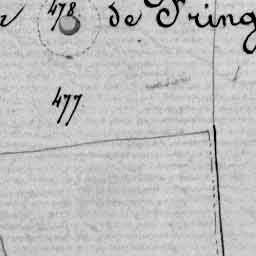 478 de Fring
477